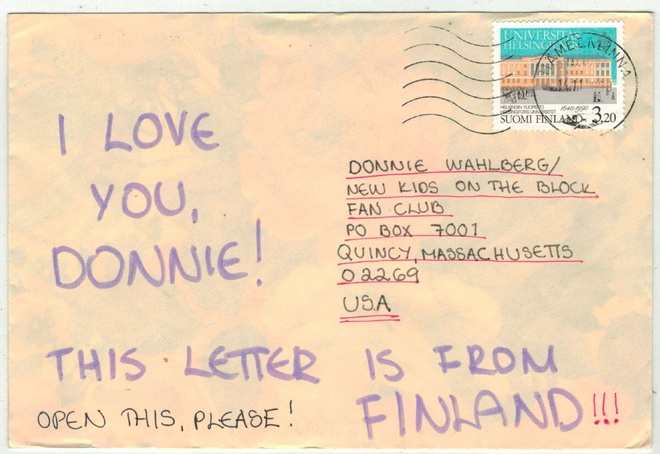 UNIVERSITAS
HELSINGIENSIS
HELSINGIN YLIOPISTO
HELSINGFORS UNIVERSITET
1640-1990
SUOMI FINLAND 3,20
HÄMEENLINNA
I LOVE
YOU,
DONNIE!
DONNIE WAHLBERG/
NEW KIDS ON THE BLOCK
FAN CLUB
PO BOX 7001
QUINCY, MASSACHUSETTS
02269
USA
THIS LETTER IS FROM
FINLAND!!!
OPEN THIS, PLEASE!